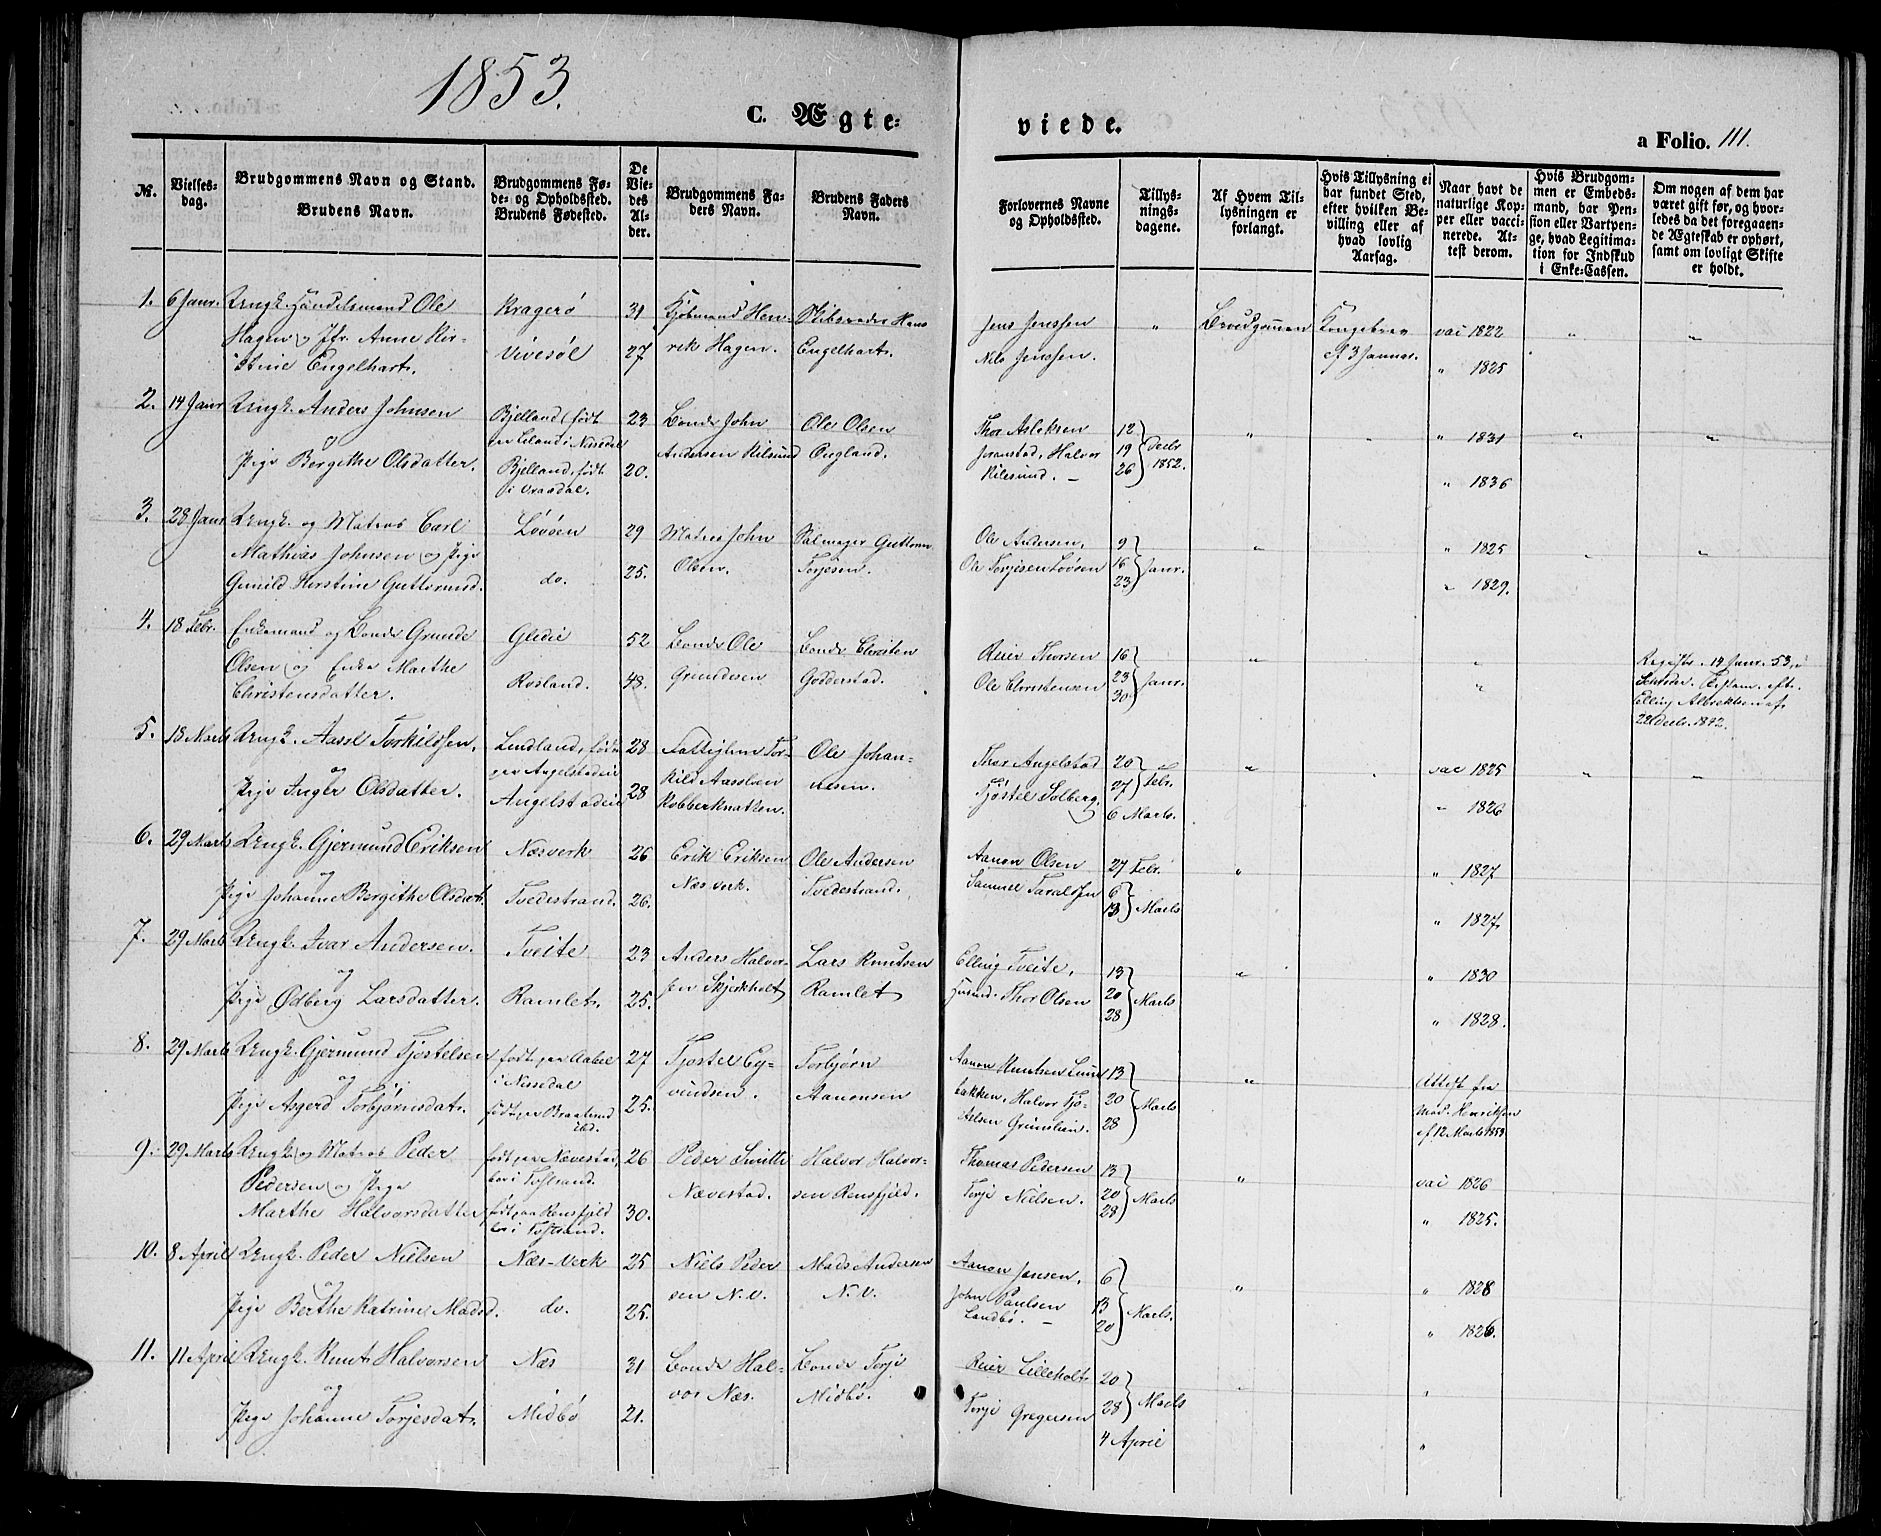 1853.
C. Ægte-
viede.
a Folio. 111.
No.
Vielses-
dag.
Brudgommens Navn og Stand.
Brudens Navn.
Brudgommens Fø-
de- og Opholdssted.
Brudens Fødested.
De
Vie-
des
Al-
der.
Brudgommens Fa-
ders Navn.
Brudens Faders
Navn.
Forlovernes Navne
og Opholdssted.
Tillys-
nings-
dagene.
Af Hvem Til-
lysningen er
forlangt.
Hvis Tillysning ei
har fundet Sted,
efter hvilken Be-
villing eller af
hvad lovlig
Aarsag.
Naar havt de
naturlige Kop-
per eller vacci-
nerede. At-
test derom.
Hvis Brudgom-
men er Embeds-
mand, har Pen-
sion eller Vartpen-
ge, hvad Legitima-
tion for Indskud
i Enke-Cassen.
Om nogen af dem har
været gift før, og hvor-
ledes da det foregaaen-
de Ægteskab er ophørt,
samt om lovligt Skifte
er holdt.
1. 6 Janr. Ungk. Handelsmand Ole
Hagen og Jfr. Anne Kir-
stine Engelhart.
Kragerø
Vivesøl
31
27
Kjøbmand Hen-
rik Hagen.
Skibsreder Hans
Engelhart.
Jens Jenssen
Nils Jenssen.
"
Brudgommen
Kongebrev
af 3 Januar.
vac 1822
" 1825
"
"
2. 14 Janr Ungk. Anders Johnsen
og
Pige Borgithe Olsdatter.
Bjelland, født
i Nissedal
Bjelland, født
i Vraadal.
23
20.
Bonde John
Andersen Kilsund
Ole Olsen
Øygland.
Thor Aslaksen
Joranstad, Halvor
Kilesund. –
12
19
26
Decbr
1852.
"
" 1831
" 1836
"
"
3. 28 Janr Ungk. og Matros Carl
Mathias Johnsen og Pige
Gunild Kirstine Guttormsd.
Løvøen
do.
29
25.
Matros John
Olsen.
Salmager Guttorm
Torjesen.
Ole Andersen,
Ole Torjesen Løvøen
9
16
23
Janr.
"
" 1825
" 1829.
"
"
4. 18 Febr. Enkemand og Bonde Grunde
Olsen og Enke Marthe
Christensdatter.
Gledie
Rosland.
52
48.
Bonde Ole
Grundesen
Bonde Christen
Godderstad.
Reier Thorsen
Ole Christensen
16
23
30
Janr.
"
"
"
14 Janr. 53,
Elling Albrektsen
22 Decbr. 1842.
5. 18 Marts Ungk. Aasel Torkildsen,
og
Pige Inger Olsdatter.
Lindland, født
paa Angelstadeie
Angelstadeie
28
28
Fattiglem Tor-
kild Aasslsen
Kobberknatten.
Ole Johan-
nesen.
Thor Angelstad
Tjøstel Solberg.
20
27
Febr.
6 Marts.
"
vac 1825
" 1826
"
"
6. 29 Marts Ungk. Gjermund Eriksen
og
Pige Johanne Borgithe Olsdatt.
Næsverk
Tvedestrand.
26
26.
Erik Eriksen
Næsverk.
Ole Andersen
Tvedestrand.
Aanon Olsen
Samuel Taraldsen
27 Febr.
6
13
Marts
"
" 1827
" 1827.
7. 29 Marts Ungk. Ivar Andersen.
og
Pige Ødberg Larsdatter.
Tveite
Ramlet.
23
25.
Anders Halvor-
sen Skjerkholt
Lars Knutsen
Ramlet
Elling Tveite,
Thor Olsen
13
20
28
Marts
"
" 1830
" 1828.
8. 29 Marts Ungk. Gjermund Tjostelsen
og
Pige Asgerd Torbjørnsdat.
født paa Aabel
i Nissedal
født paa Braalund
ibd.
27
25.
Tjostel Ey-
vindsen.
Torbjørn
Aanonsen
Aanon Knutsen Lund-
bakken, Halvor Tjo-
stelsen Grimslien.
13
20
28
Marts
"
Attest fra
Mod. Henriksen
af 12 Marts 1853
9. 29 Marts Ungk. og Matros Peder
Pedersen og Pige
Marthe Halvorsdatter
født paa Nævestad,
bor i Tvstrand.
født paa Rensfjeld
bor i Tvstrand.
26
30.
Peder Smith
Nævestad.
Halvor Halvor-
sen Rensfjeld.
Thomas Pedersen
Terje Nielsen.
13
20
28
Marts
"
vac 1826
" 1825.
10. 8 April Ungk. Peder Nielsen
og
Pige Berthe Katrine Madsd.
Næs-Verk
do.
25
25.
Niels Peder
sen N.V.
Mads Andersen
N.V.
Aanon Jensen,
John Paulsen
Landbø. –
6
13
20
Marts.
"
" 1828
" 1826.
11. 11 April Ungk. Knut Halvorsen
og
Pige Johanne Torjesdat.
Næs
Midbø
31
21.
Bonde Hal-
vor Næs.
Bonde Torje
Midbø.
Reier Lilleholt
Terje Gregersen
20
28
Marts
4 April
"
"
"